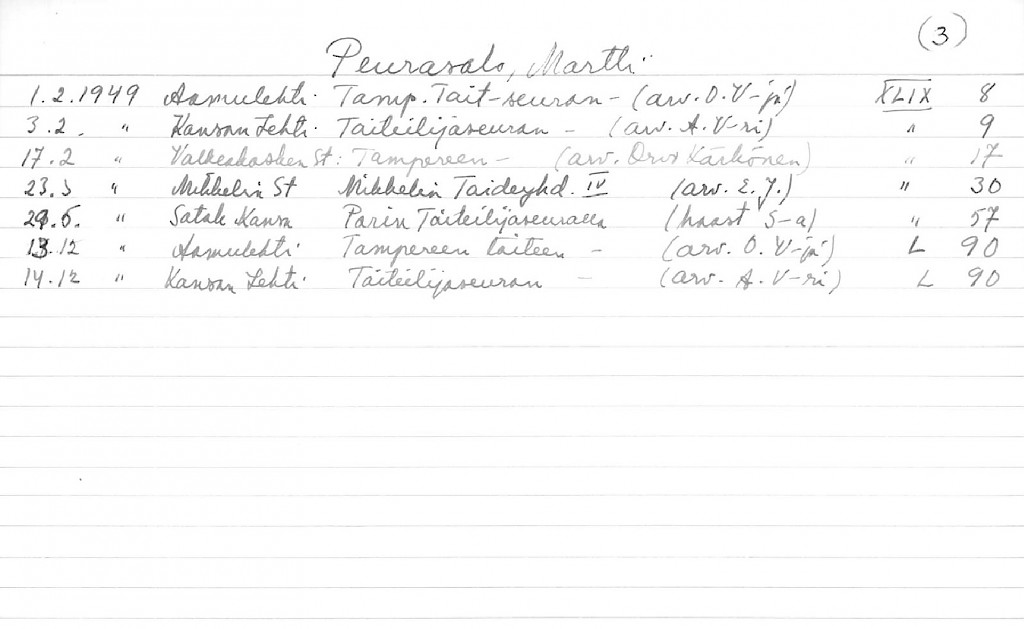 (3)
Peurasalo, Martti
1.2.1949 Aamulehti. Tamp. Tait-seuran - (arv. O.V-jä) XLIX 8
3.2. " Kansan Lehti. Taiteilijaseuran - (arv. A.V-ri) " 9
17.2 " Valkeakosken St: Tampereen - (arv. Orvo Kärkönen) " 17
23.3 " Mikkelin St Mikkelin Taideyhd. IV (arv. E.J.) " 30
29.6. " Satak. Kansa Porin Taiteilijaseuralla (haast S-a) " 57
13.12 " Aamulehti Tampereen taiteen - (arv. O. V-jä) L 90
14.12 " Kansan Lehti Taiteilijaseuran - (arv. A. V-ri) L 90